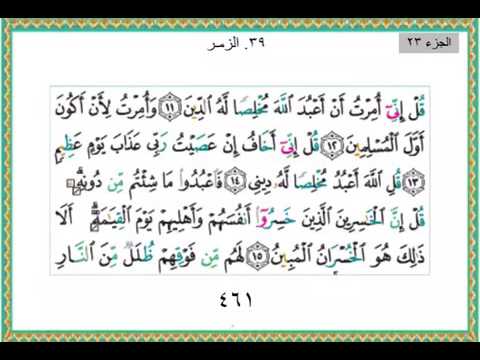 الجزء ٢٣
٣٩. الزمر
قُلْ إِنِّىٓ أُمِرْتُ أَنْ أَعْبُدَ ٱللَّهَ مُخْلِصًا لَّهُ ٱلدِّينَ ١١ وَأُمِرْتُ لِأَنْ أَكُونَ
أَوَّلَ ٱلْمُسْلِمِينَ ١٢ قُلْ إِنِّىٓ أَخَافُ إِنْ عَصَيْتُ رَبِّى عَذَابَ يَوْمٍ عَظِيمٍ
١٣ قُلِ ٱللَّهَ أَعْبُدُ مُخْلِصًا لَّهُ دِينِى ١٤ فَٱعْبُدُوا۟ مَا شِئْتُم مِّن دُونِهِۦ ۗ
قُلْ إِنَّ ٱلْخَـٰسِرِينَ ٱلَّذِينَ خَسِرُوٓا۟ أَنفُسَهُمْ وَأَهْلِيهِمْ يَوْمَ ٱلْقِيَـٰمَةِ ۗ أَلَا
ذَٰلِكَ هُوَ ٱلْخُسْرَانُ ٱلْمُبِينُ ١٥ لَهُم مِّن فَوْقِهِمْ ظُلَلٌ مِّنَ ٱلنَّارِ
٤٦١